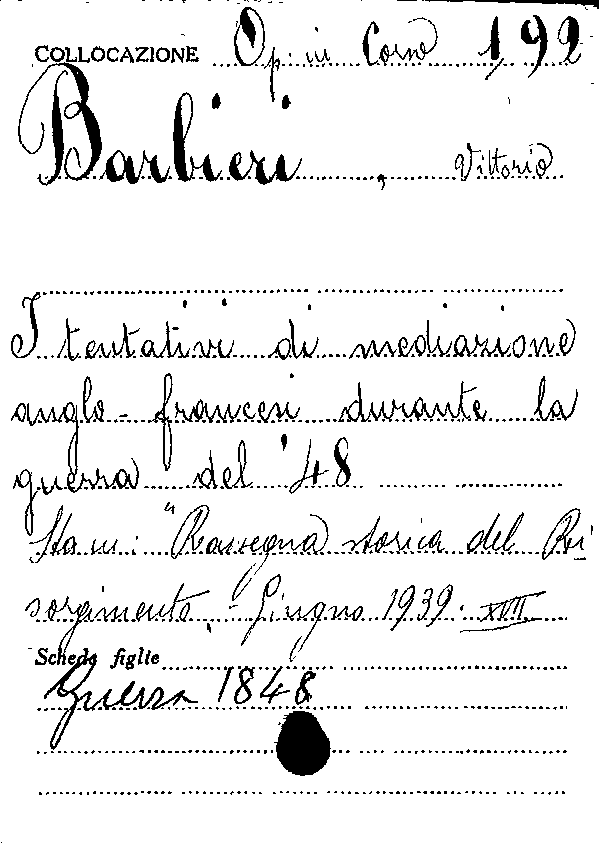 COLLOCAZIONE Op. in Corso 1,92
Barbieri, Vittorio
I tentativi di mediazione
anglo-francesi durante la
guerra del '48
Sta in: "Rassegna storica del Ri
sorgimento". - Giugno 1939. XVII
Schede figlie
Guerra 1848